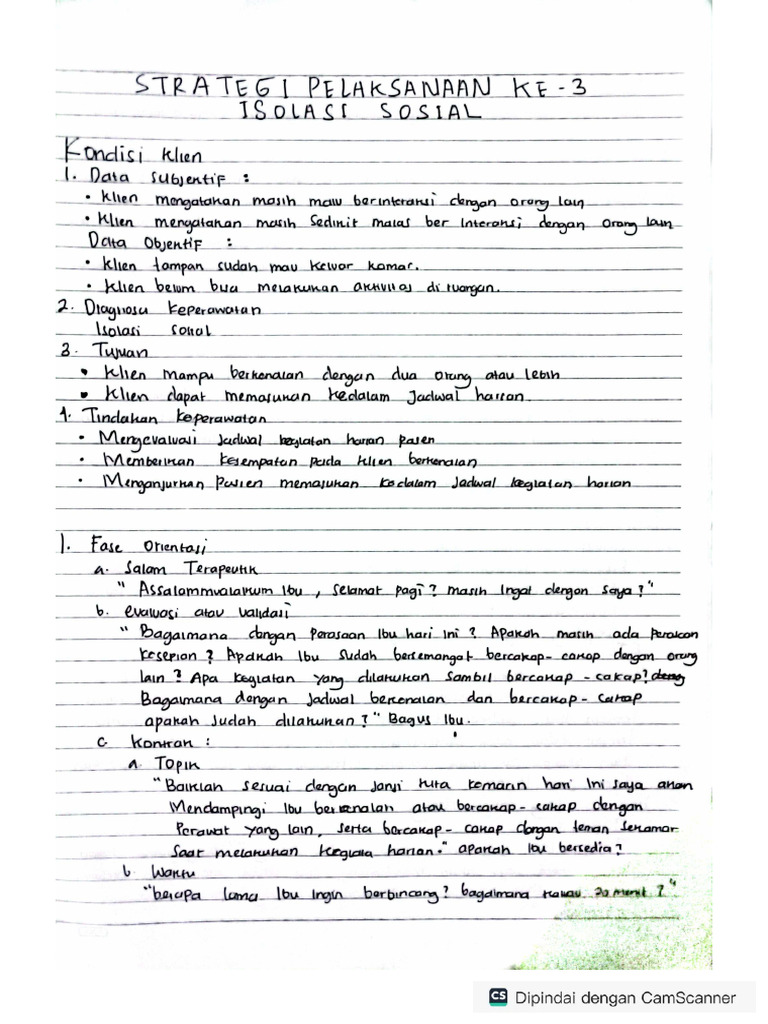 STRATEGI PELAKSANAAN KE-3
ISOLASI SOSIAL
Kondisi Klien
1. Data Subjektif :
• Klien mengatakan masih mau berinteraksi dengan orang lain
• Klien mengatakan masih Sedikit malas ber interaksi dengan orang lain
Data Objektif :
• Klien tampak sudah mau keluar kamar.
• Klien belum bisa melakukan aktivitas di ruangan.
2. Diagnosa Keperawatan
Isolasi sosial
3. Tujuan
• Klien mampu berkenalan dengan dua orang atau lebih
• Klien dapat memasukan kedalam Jadwal harian.
4. Tindakan Keperawatan
• Mengevaluasi Jadwal kegiatan harian pasien
• Memberikan kesempatan pada klien berkenalan
• Menganjurkan Pasien memasukan kedalam Jadwal kegiatan harian
1. Fase Orientasi
a. Salam Terapeutik
" Assalammualaikum Ibu, selamat pagi? masih Ingat dengan saya?"
b. evaluasi atau validasi
" Bagaimana dengan perasaan Ibu hari ini? Apakah masih ada perasaan
kesepian? Apakah Ibu sudah bersemangat bercakap-cakap dengan orang
lain? Apa kegiatan yang dilakukan sambil bercakap-cakap?
Bagaimana dengan Jadwal berkenalan dan bercakap-cakap
apakah sudah dilakukan?" Bagus Ibu.
c. Kontrak :
a. Topik
"Baiklah sesuai dengan janji kita kemarin hari ini saya akan
Mendampingi Ibu berkenalan atau bercakap-cakap dengan
Perawat yang lain, serta bercakap-cakap dengan teman sekamar
Saat melakukan kegiata harian." apakah Ibu bersedia?
b Waktu
"berapa lama Ibu Ingin berbincang? bagaimana kalau 20 menit?"
CS Dipindai dengan CamScanner